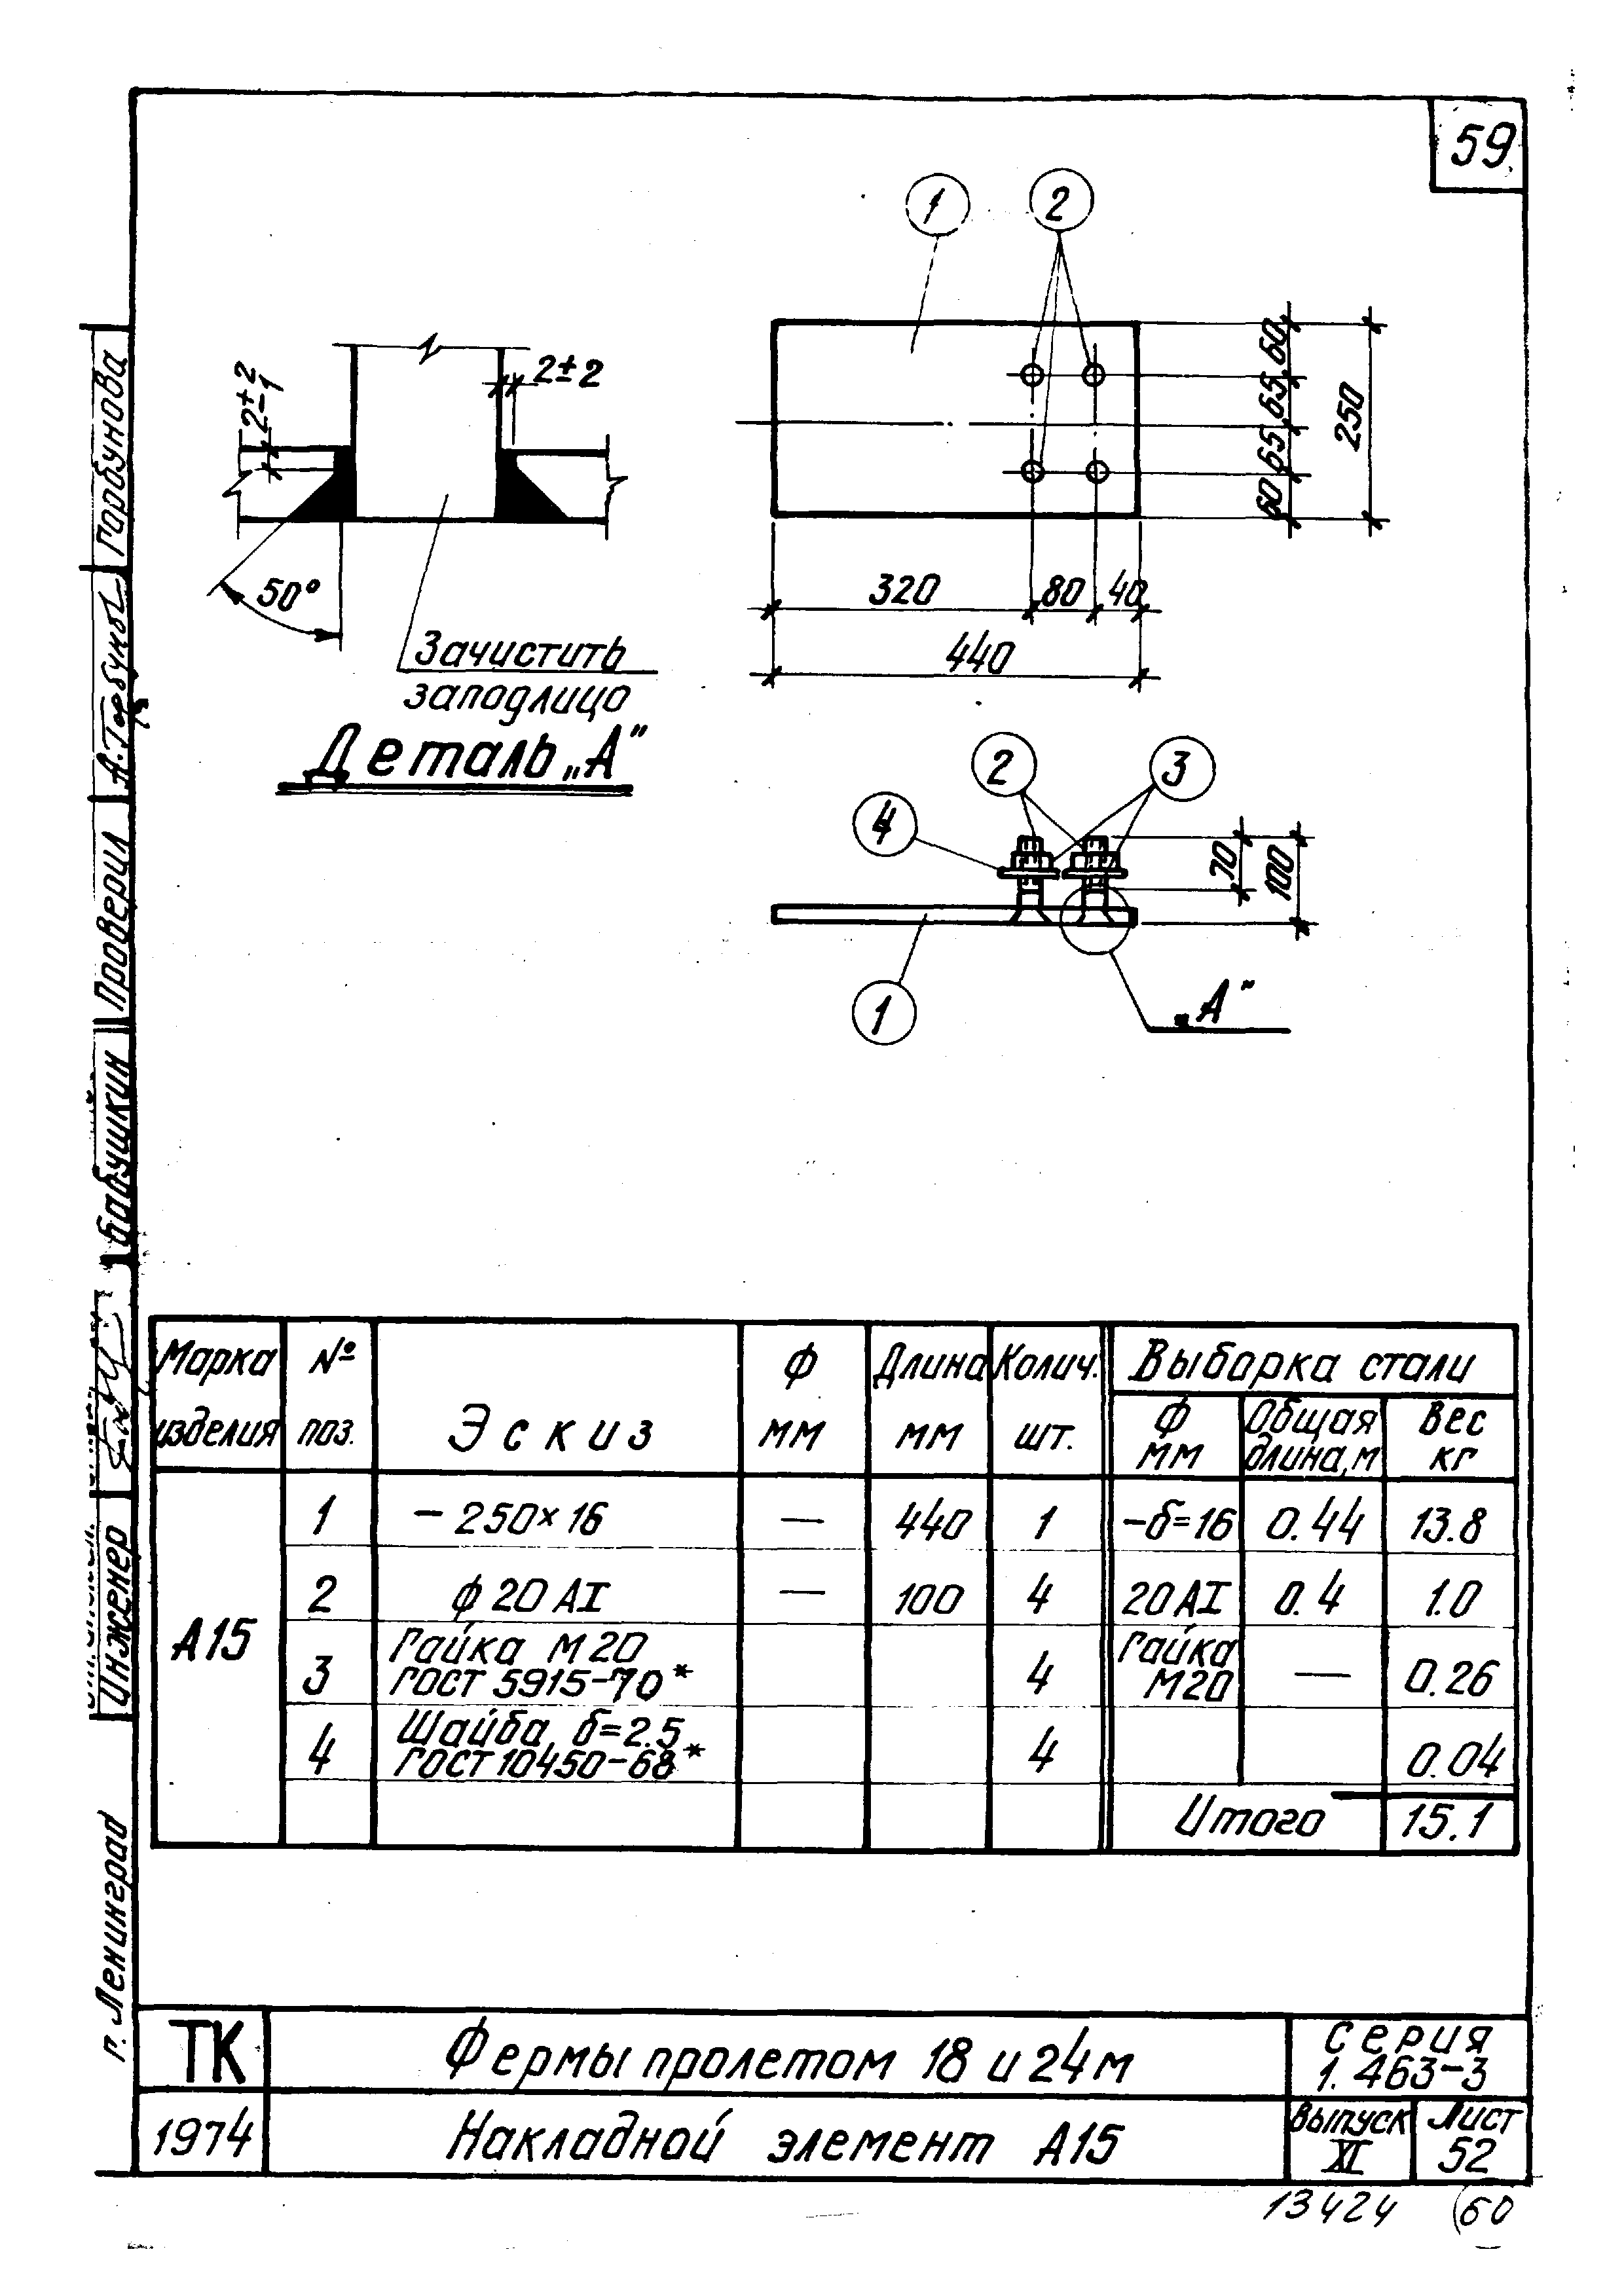 59
1
2
2±2
2±2
-1
50°
Зачистить
заподлицо
Деталь „А"
60
65
65
60
250
320
80
40
440
2
3
4
70
100
1
„А"
Марка изделия
№ поз.
Эскиз
Ф мм
Длина мм
Колич. шт.
Выборка стали
Ф мм
Общая длина, м
Вес кг
А15
1 - 250×16 — 440 1 -δ=16 0.44 13.8
2 ф 20 АI — 100 4 20 АI 0.4 1.0
3 Гайка М20 ГОСТ 5915-70* 4 Гайка М20 — 0.26
4 Шайба δ=2.5 ГОСТ 10450-68* 4 0.04
Итого 15.1
ТК
Фермы пролетом 18 и 24м
Серия
1.463-3
1974
Накладной элемент А15
Выпуск
XI
Лист
52
13424
60
Горбунова
Проверил
Бабушкин
Инженер
г. Ленинград